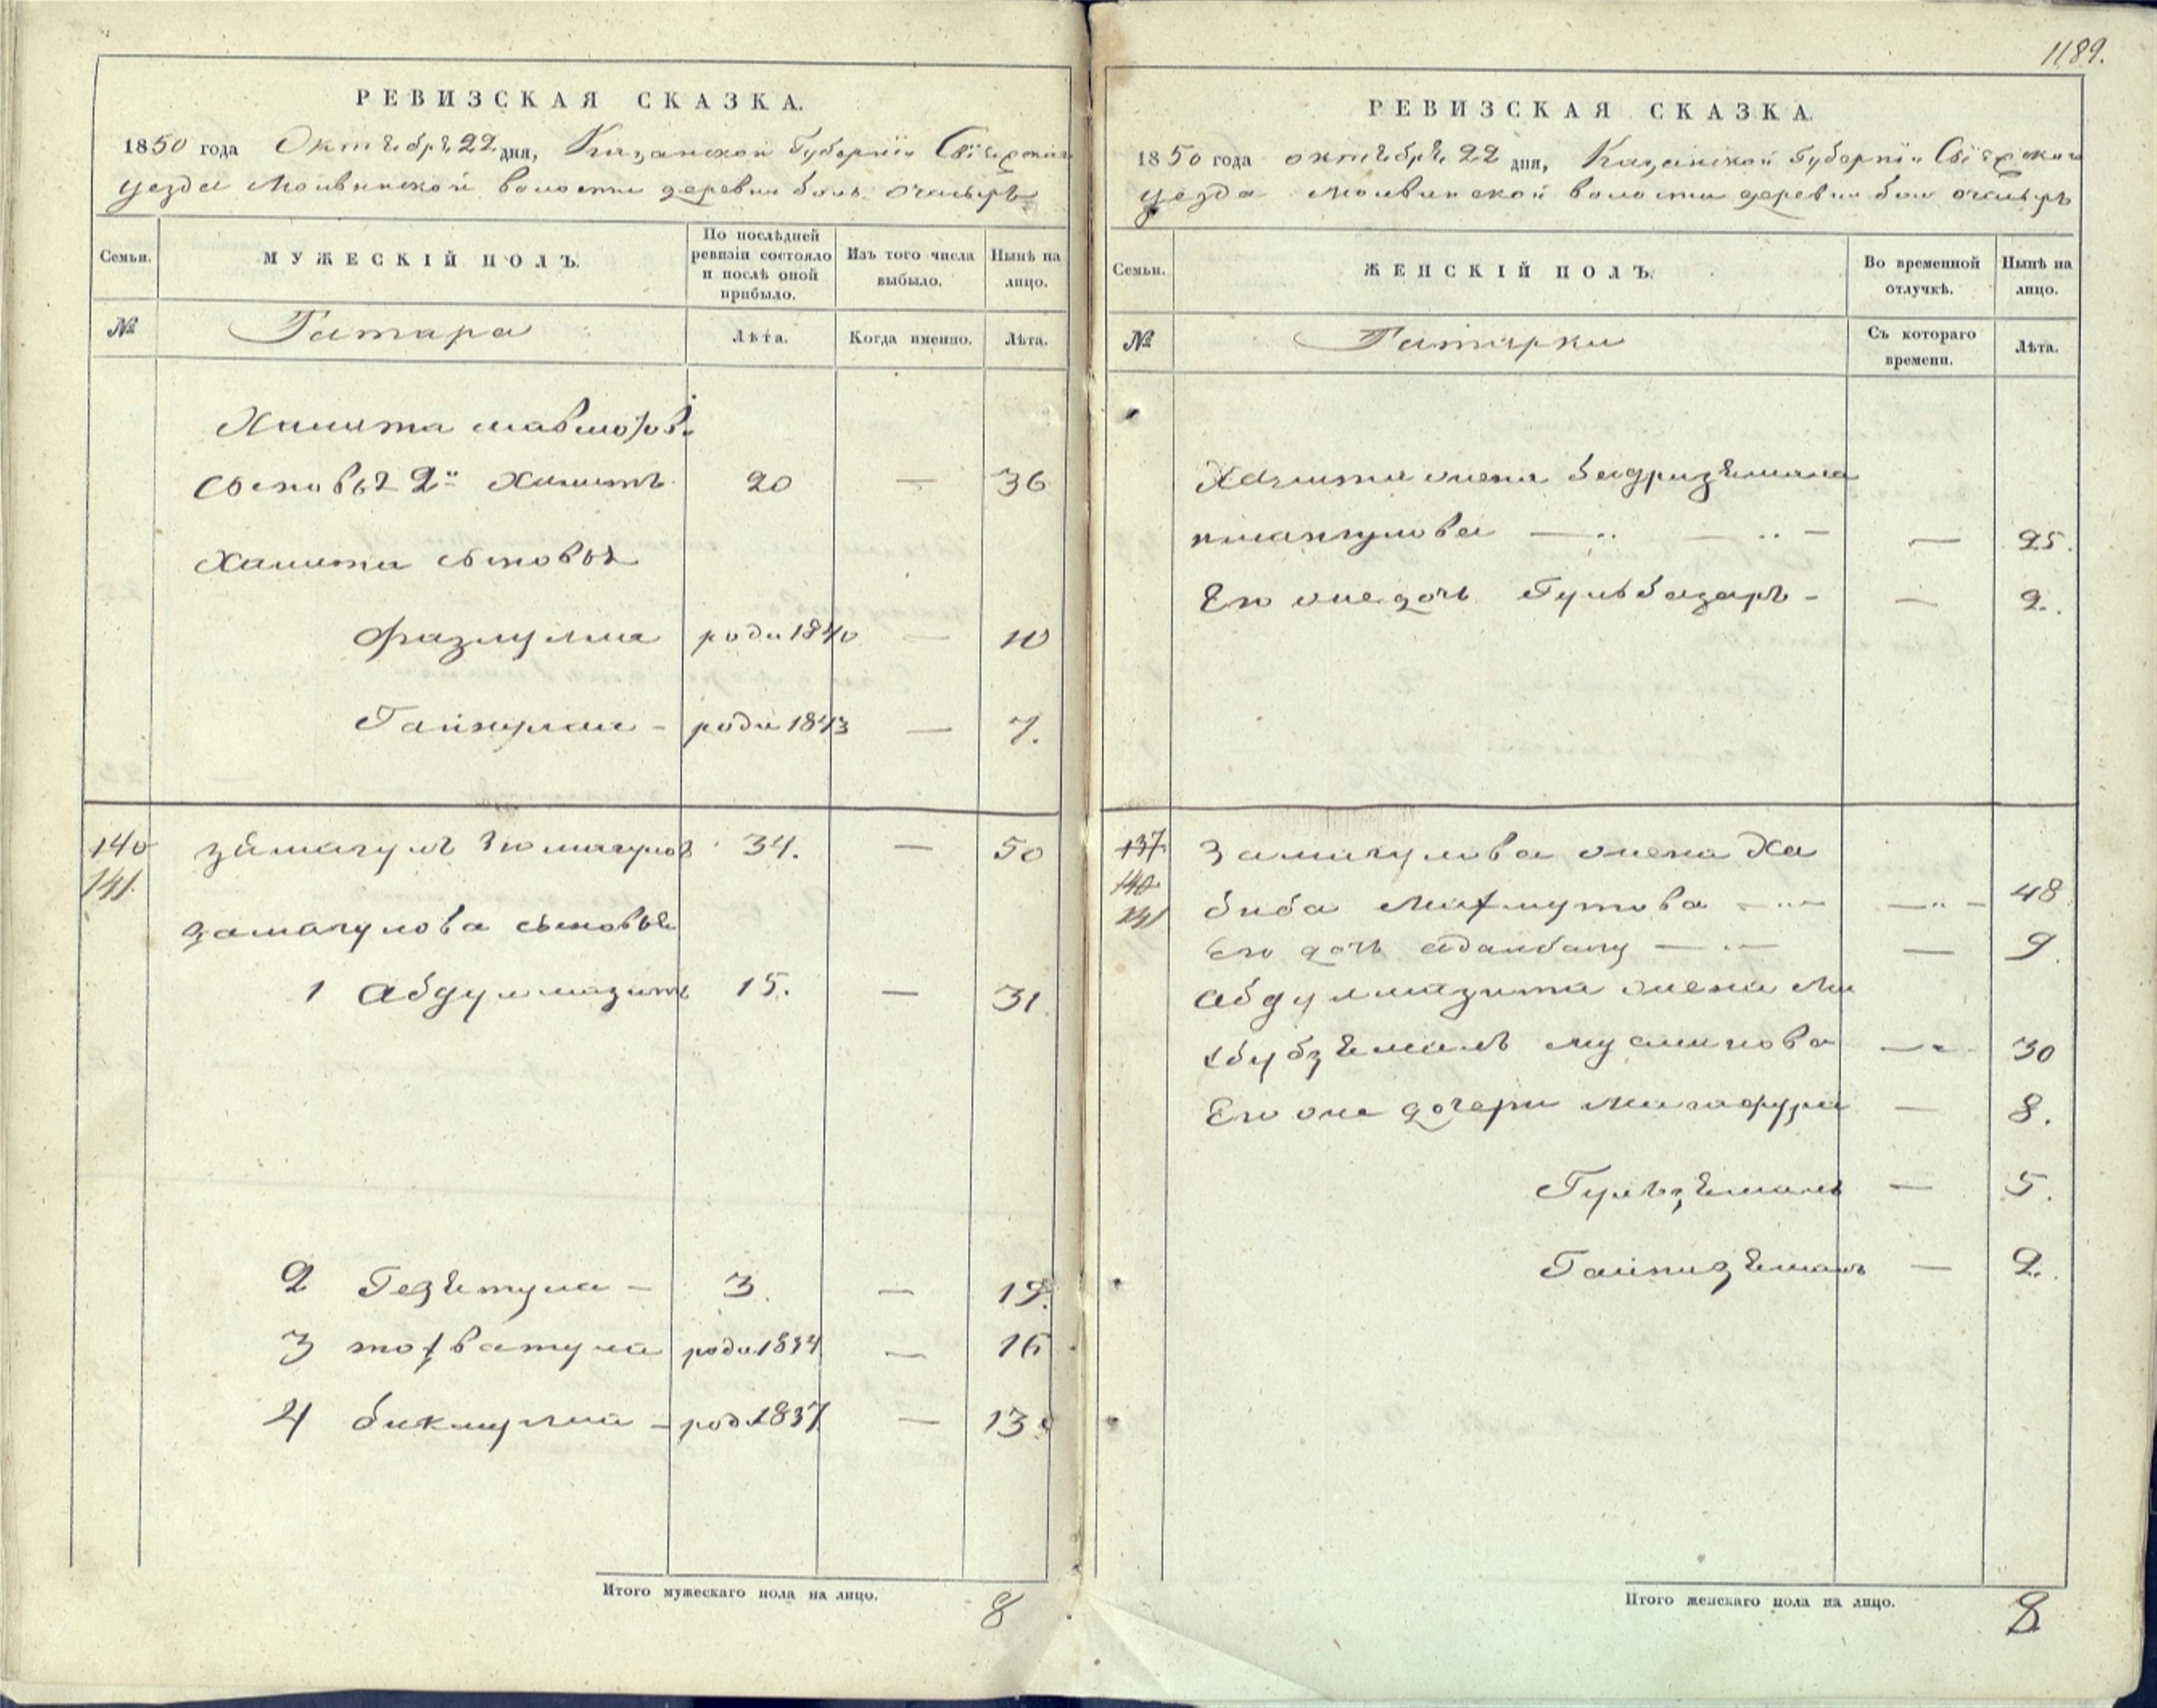 1189.
РЕВИЗСКАЯ СКАЗКА.
1850 года Октября 22 дня, Казанской Губернiи Свiяжскаго
уезда Молвинской волости деревни боль. очасырь
Семьи.
МУЖЕСКІЙ ПОЛЪ.
По послѣдней ревизіи состояло и послѣ оной прибыло.
Изъ того числа выбыло.
Нынѣ на лицо.
№
Татара
Лѣта.
Когда именно.
Лѣта.
Хамита
сыновья 2й Хамитъ 20 — 36
Хамита сыновья
Фазлулла роди 1840 — 10
Гайнулла - роди 1843 — 7.
140 замагулъ Зюмагулов 34. — 50
141
замагулова сыновья
1 Абдулмазитъ 15. — 31.
2 3. — 19.
3 тохватулла роди 1834 — 16
4 бикмулла - роди 1837 — 13.
Итого мужескаго пола на лицо. 8
РЕВИЗСКАЯ СКАЗКА
1850 года октября 22 дня, Казанской Губернiи Свiяжскаго
уезда Молвинской волости деревни бол очасырь
Семьи.
ЖЕНСКІЙ ПОЛЪ.
Во временной отлучкѣ.
Нынѣ на лицо.
№
Татарки
Съ котораго времени.
Лѣта.
Хамита жена Бадризямала
— 25.
Его же дочь Гульбазаръ - — 2.
137 Замагулова жена Ха
140 биба Махмутова — 48
141
Его дочь Адамбану — 9.
Абдулмазита жена Ма
хбубзямалъ муслимова — 30
Его же дочери Магафура — 8.
Гульзямалъ — 5.
Гайнизямалъ — 2.
Итого женскаго пола на лицо. 8